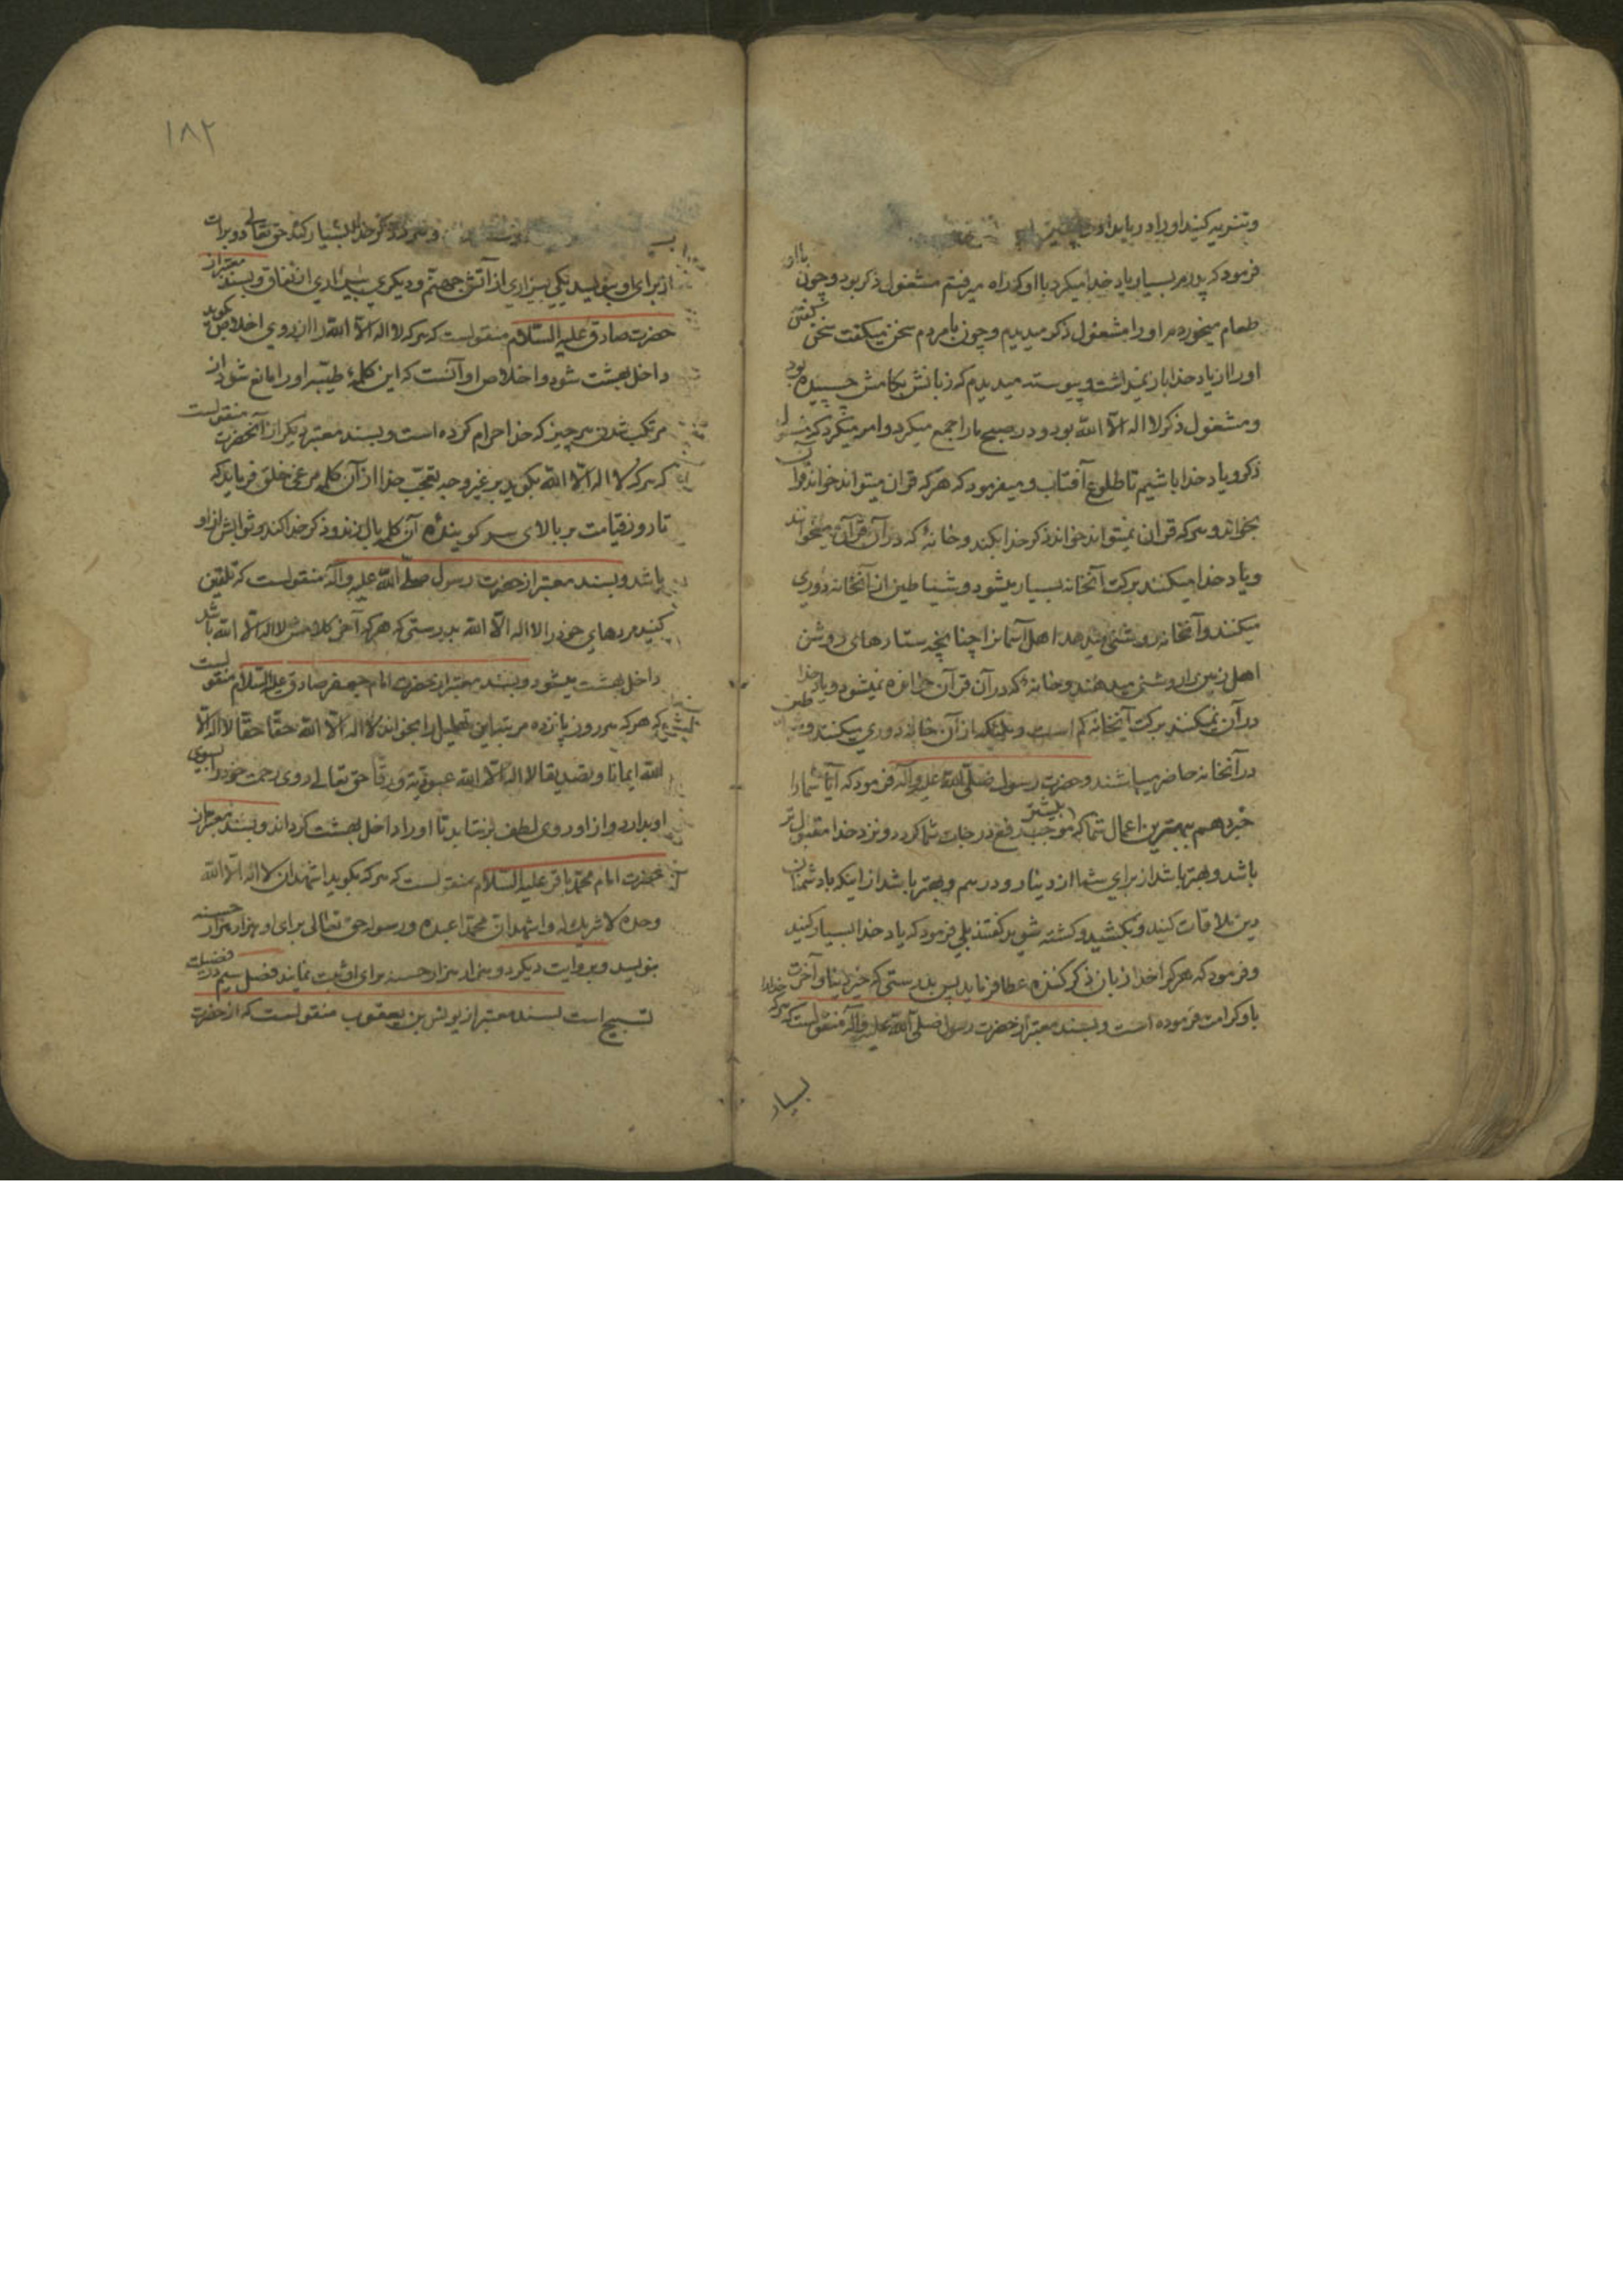 وتنزیه کنید او را در بامداد و پسین
فرمود که پدرم بسیار یاد خدا میکرد با او که راه میرفتم مشغول ذکر بود و چون با او
طعام میخوردم او را مشغول ذکر میدیدم و چون با مردم سخن میکفت سخن کفتن
او را از یاد خدا باز نمیداشت و پیوسته میدیدم که زبانش بکامش چسپیده بود
و مشغول ذکر لا اله الا الله بود و در صبح ما را جمع میکرد و امر میکرد که مشغول
ذکر و یاد خدا باشیم تا طلوع آفتاب و میفرمود که هرکه قران میتواند خواند قرآن
بخواند و هرکه قران نمیتواند خواند ذکر خدا بکند و خانۀ که در آن قرآن میخوانند
و یاد خدا میکنند برکت آنخانه بسیار میشود و شیاطین از آنخانه دوری
میکنند و آنخانه روشنی میدهد اهل آسمانرا چنانچه ستارهای روشن
اهل زمین را روشنی میدهند و خانۀ که در آن قرآن خوانده نمیشود و یاد خدا
در آن نمیکنند برکت آنخانه کم است و ملئکه از آن خانه دوری میکنند و شیاطین
در آنخانه حاضر میباشند و حضرت رسول صلی الله علیه و آله فرمود که آیا شما را
خبر دهم ببهترین اعمال شما که موجب رفع درجات شما کردد و نزد خدا مقبول تر
بیشتر
باشد و بهتر باشد از برای شما از دینار و درهم و بهتر باشد از اینکه با دشمنان
دین ملاقات کنید و بکشید و کشته شوید کفتند بلی فرمود که یاد خدا بسیار کنید
و فرمود که هرکرا خدا زبان ذکر کننده عطا فرماید پس بدرستی که خیر دنیا و آخرت
باو کرامت فرموده است و بسند معتبر از حضرت رسول صلی الله علیه و آله منقولست که هرکه خدا را
بسیار
۱۸۲
و هرکه ذکر خدا بسیار کند حق تعالی دو برات
از برای او بنویسد یکی بیزاری از آتش جهنم و دیکری بیزاری از نفاق و بسند معتبر از
حضرت صادق علیه السلام منقولست که هرکه لا اله الا الله را از روی اخلاص بکوید
داخل بهشت شود و اخلاص او آنست که این کلمۀ طیبه او را مانع شود از
مرتکب شدن هر چیز که خدا حرام کرده است و بسند معتبر دیکر از آنحضرت منقولست
که هرکه لا اله الا الله بکوید بر غیر وجه تعجب خدا از آن کلمه مرغی خلق فرماید که
تا روز قیامت بر بالای سر کوینده آن کلمه بال زند و ذکر خدا کند و ثوابش از او
باشد و بسند معتبر از حضرت رسول صلی الله علیه و آله منقولست که تلقین
کنید مردهای خود را لا اله الا الله بدرستی که هرکه آخر کلامش لا اله الا الله باشد
داخل بهشت میشود و بسند معتبر از حضرت امام جعفر صادق علیه السلام منقولست
که هرکه هر روز پانزده مرتبه این تهلیل را بخواند لا اله الا الله حقا حقا لا اله الا
الله ایمانا و تصدیقا لا اله الا الله عبودیة و رقا حق تعالی روی رحمت خود را بسوی
او بدارد و از او روی لطف برنتابد تا او را داخل بهشت کرداند و بسند معتبر از
حضرت امام محمد باقر علیه السلام منقولست که هرکه بکوید اشهد ان لا اله الا الله
وحده لا شریک له و اشهد ان محمدا عبده و رسوله حق تعالی برای او هزار هزار حسنه
بنویسد و بروایت دیکر دو هزار هزار حسنه برای او ثبت نماید فصل سیم در فضیلت
تسبیح است بسند معتبر از یونس بن یعقوب منقولست که از حضرت